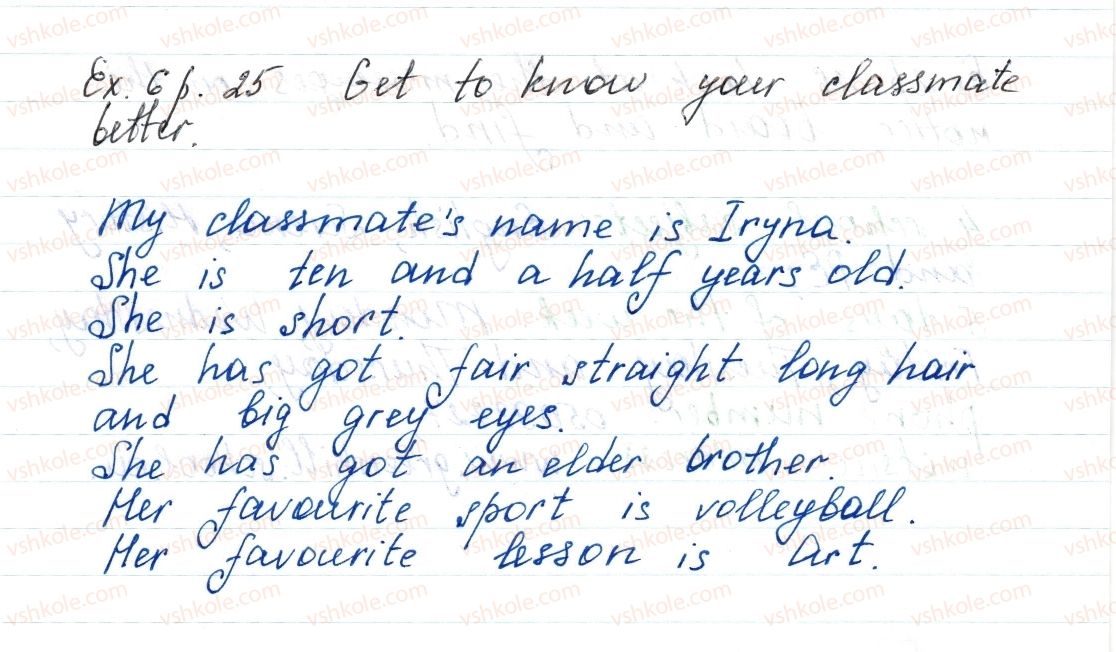 Ex. 6 p. 25 Get to know your classmate
better.
My classmate's name is Iryna.
She is ten and a half years old.
She is short.
She has got fair straight long hair
and big grey eyes.
She has got an elder brother.
Her favourite sport is volleyball.
Her favourite lesson is Art.